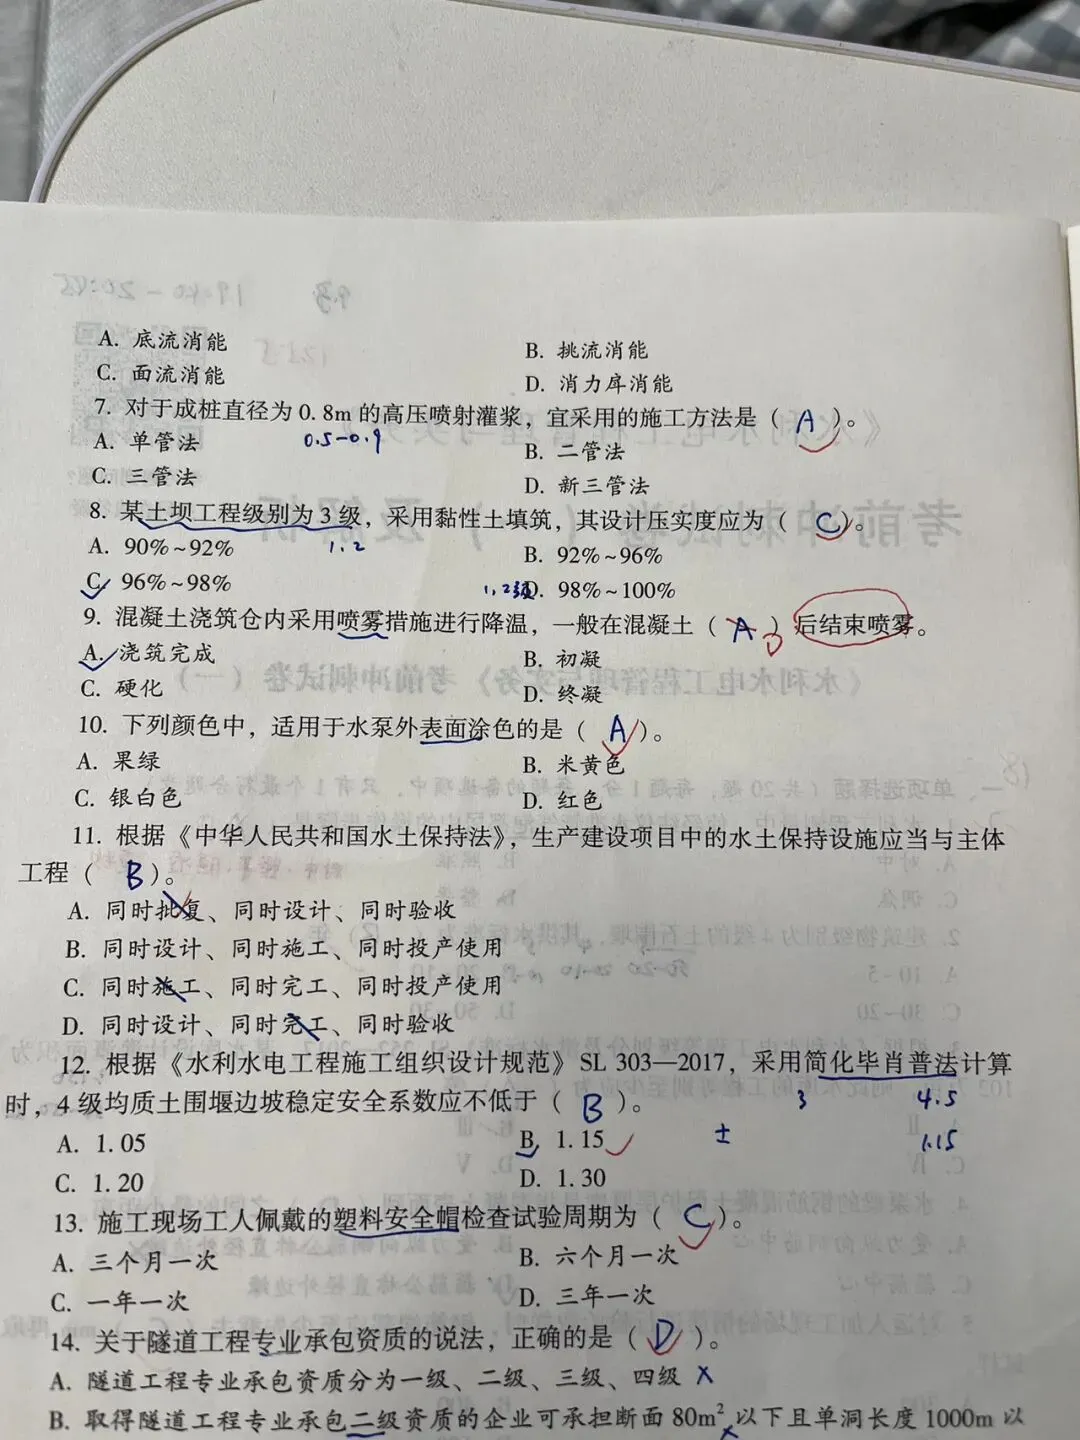 A. 底流消能 B. 挑流消能
C. 面流消能 D. 消力戽消能
7. 对于成桩直径为 0.8m 的高压喷射灌浆，宜采用的施工方法是（ A ）。
A. 单管法 0.5-0.9 B. 二管法
C. 三管法 D. 新三管法
8. 某土坝工程级别为 3 级，采用黏性土填筑，其设计压实度应为（ C ）。
A. 90%~92% 1.2 B. 92%~96%
C. 96%~98% 1,2级 D. 98%~100%
9. 混凝土浇筑仓内采用喷雾措施进行降温，一般在混凝土（ A D ）后结束喷雾。
A. 浇筑完成 B. 初凝
C. 硬化 D. 终凝
10. 下列颜色中，适用于水泵外表面涂色的是（ A ）。
A. 果绿 B. 米黄色
C. 银白色 D. 红色
11. 根据《中华人民共和国水土保持法》，生产建设项目中的水土保持设施应当与主体
工程（ B ）。
A. 同时批复、同时设计、同时验收
B. 同时设计、同时施工、同时投产使用
C. 同时施工、同时完工、同时投产使用
D. 同时设计、同时完工、同时验收
12. 根据《水利水电工程施工组织设计规范》SL 303—2017，采用简化毕肖普法计算
时，4 级均质土围堰边坡稳定安全系数应不低于（ B ）。 3 4.5
A. 1.05 B. 1.15 土 1.15
C. 1.20 D. 1.30
13. 施工现场工人佩戴的塑料安全帽检查试验周期为（ C ）。
A. 三个月一次 B. 六个月一次
C. 一年一次 D. 三年一次
14. 关于隧道工程专业承包资质的说法，正确的是（ D ）。
A. 隧道工程专业承包资质分为一级、二级、三级、四级 x
B. 取得隧道工程专业承包二级资质的企业可承担断面 80m² 以下且单洞长度 1000m 以